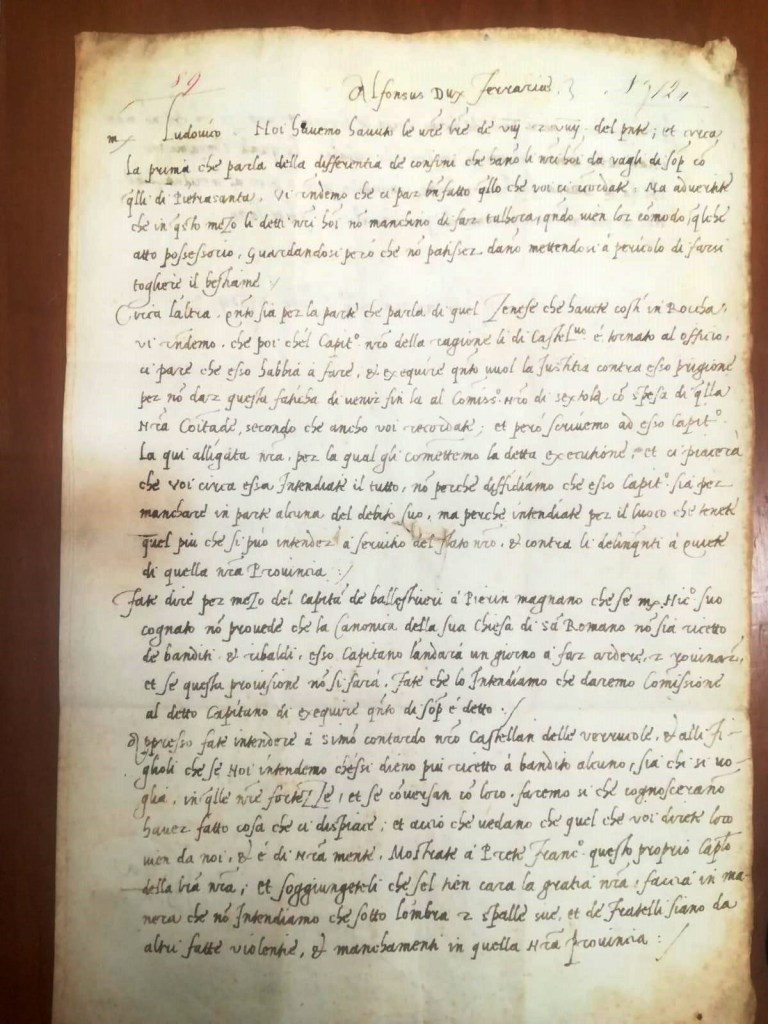 89 Alfonsus Dux Ferrariae 3
mr Ludovico. Noi havemo havuti le vre lre de viij et viiij del pnte; et circa
la prima che parla della differentia de confini che hano li nri hoi da vagli di sop co
qlli di Pietrasanta. Vi rndemo che ci par bn fatto qllo che voi ci ricordate. Ma advertite
che in qsto mezo li detti nri hoi no manchino di far tuthora, qndo vien lor comodo qlche
atto possessorio, guardandosi però che no patisser dano mettendosi à pericolo di farsi
togliere il bestiame
Circa laltra. Qnto sia per la parte che parla di quel Zenese che havete costi in Roccha
vi rndemo. che poi chel Capito nro della ragione li di Castelno é tornato al officio,
ci pare che esso habbia à fare, & exequire qnto vuol la Justitia contra esso prigione
per no dar questa faticha di venir fin la al Comisso nro di sextola co spesa di qlla
Nra Coitade, secondo che ancho voi recordate; et però scrivemo ad esso Capito.
La qui alligata nra, per la qual gli comettemo la detta executione et ci piacerà
che voi circa essa Intendiate il tutto, no perche diffidiamo che esso Capito sia per
manchare in parte alcuna del debito suo, ma perche intendiate per il luoco che tenete
quel piu che si può intender à servitio del stato nro, & contra li delinqnti à quiete
di quella nra Provincia :/
Fate dire per mezo del capita de ballestrieri à Pierin magnano che se mr Nico suo
cognato no provede che la Canonica della sua Chiesa di Sa Romano no sia ricetto
de banditi & ribaldi, esso Capitano landarà un giorno à far ardere, et rovinare,
et se questa provisione no si farà. Fate che lo Intendiamo che daremo Comissione
al detto Capitano di exequire qnto di sop é detto ./
Appresso fate intendere à Simo contardo nro Castellan delle verrucole, & alli Fi-
glioli che se Noi intendemo chessi dieno piu ricetto à bandito alcuno, sia chi si vo-
glia, in qlle nre fortezze, et se coversan co loro. faremo si che cognoscerano
haver fatto cosa che ci dispiace; et acciò che vedano che quel che voi direte loro
vien da noi, & é di Nra mente, Mostrate à Prete Franco questo proprio Caplo
della lra nra; et soggiungeteli che sel tien cara la gratia nra, faccia in ma-
nera che no Intendiamo che sotto lombra et spalle sue, et de Fratelli siano da
altri fatte violentie, & manchamenti in quella Nra Provincia :/